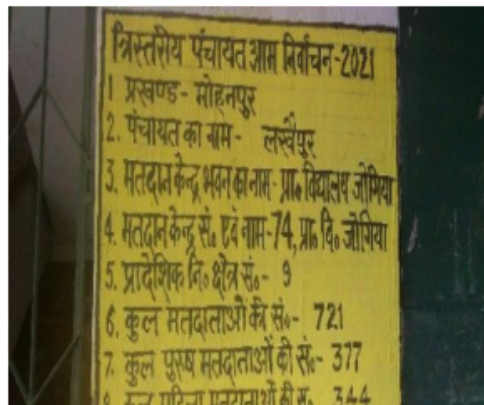 त्रिस्तरीय पंचायत आम निर्वाचन-2021
1 प्रखण्ड - मोहनपुर
2. पंचायत का नाम - लखैपुर
3. मतदान केन्द्र भवन का नाम - प्रा० विद्यालय जोगिया
4. मतदान केन्द्र सं० एवं नाम-74, प्रा० वि० जोगिया
5. प्रादेशिक नि० क्षेत्र सं०- 9
6. कुल मतदाताओं की सं०- 721
7. कुल पुरुष मतदाताओं की सं०- 377
8 कुल महिला मतदाताओं की सं० 344